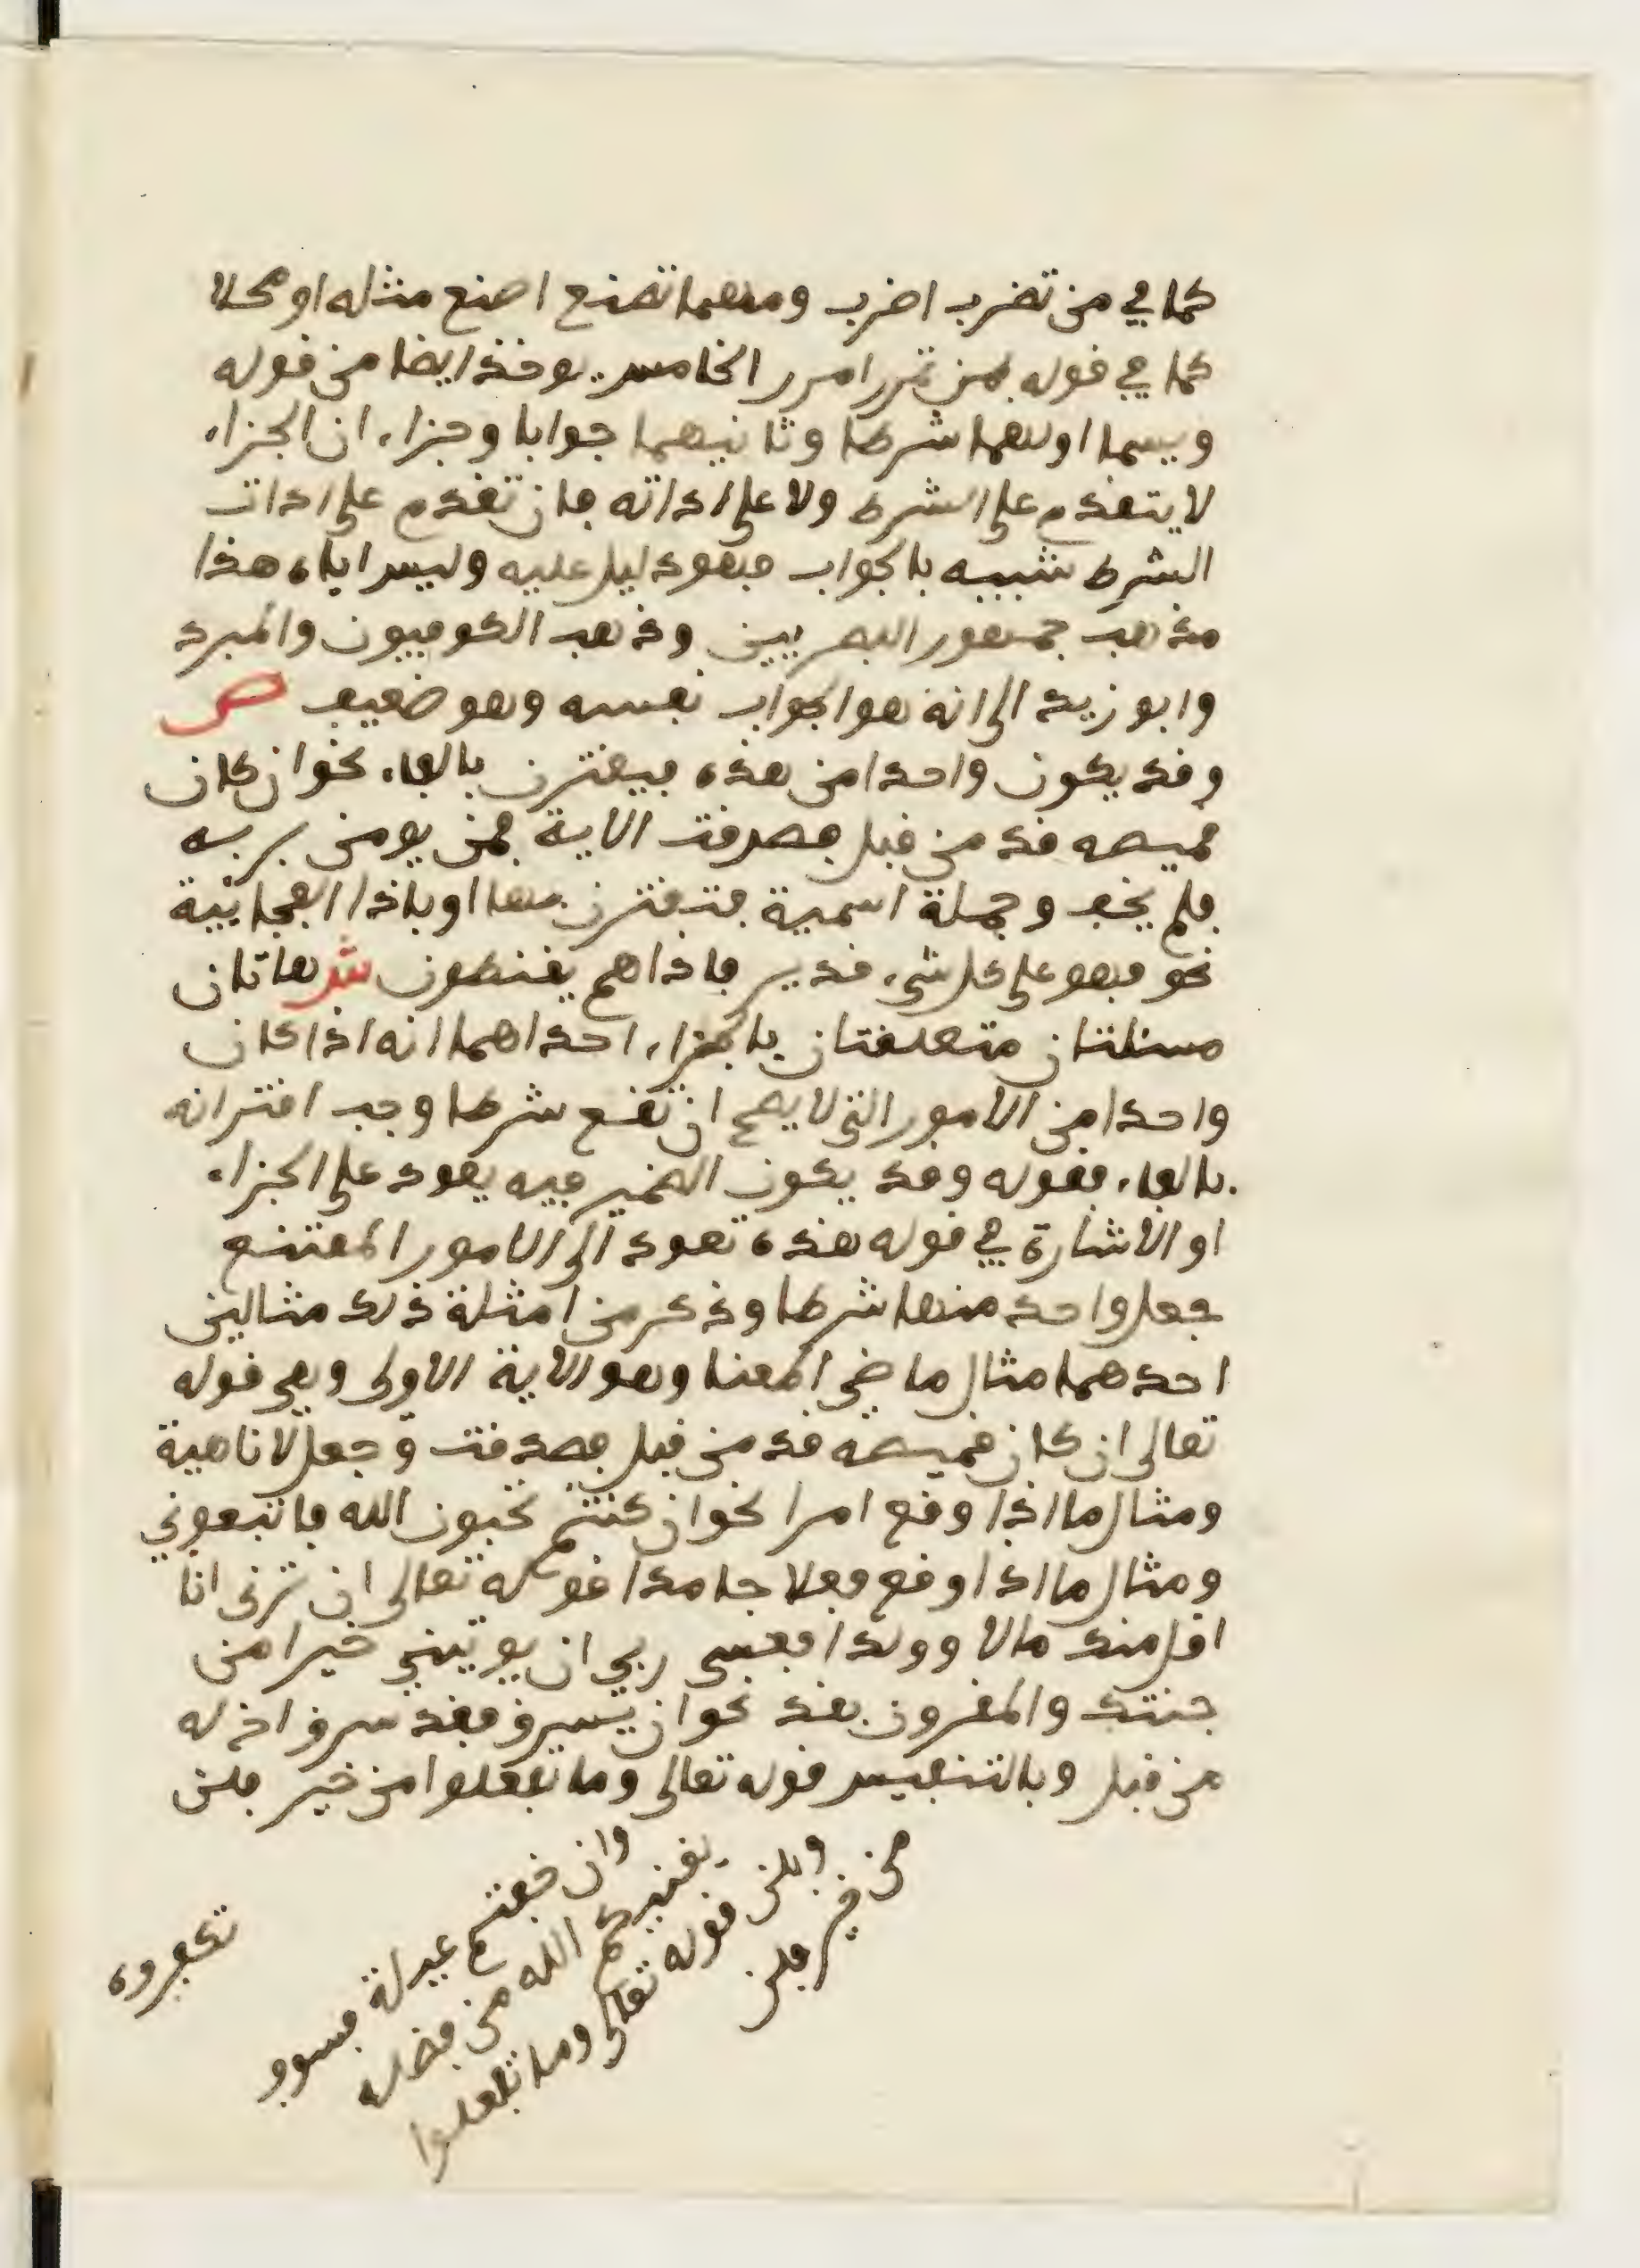 كما في من تضرب اضرب ومهما تصنع اصنع مثله او محلا
كما في قوله بمن تمرر امرر الخامس يوخذ ايضا من قوله
ويسما اولهما شرطا وثانيهما جوابا وجزاء ان الجزاء
لا يتقدم على الشرط ولا على اداته فان تقدم على ادات
الشرط شبيه بالجواب فهو دليل عليه وليس اياه هذا
مذهب جمهور البصريين وذهب الكوفيون والمبرد
وابو زيد الى انه هو الجواب نفسه وهو ضعيف ص
وقد يكون واحدا من هذه فيقترن بالفاء نحو ان كان
قميصه قد من قبل فصدقت الاية فمن يومن بربه
فلم يخف وجملة اسمية فتقترن بها او باذا الفجائية
نحو فهو على كل شيء قدير فاذا هم يقنطون ش هاتان
مسئلتان متعلقتان بالجزاء احداهما انه اذا كان
واحدا من الامور التي لا يصح ان تقع شرطا وجب اقترانه
بالفاء فقوله وقد يكون الضمير فيه يعود على الجزاء
او الاشارة في قوله هذه تعود الى الامور الممتنع
جعل واحد منها شرطا وذكر من امثلة ذلك مثالين
احدهما مثال ماضي المعنا وهو الاية الاولى وهي قوله
تعالى ان كان قميصه قد من قبل فصدقت وجعل لا ناهية
ومثال ما اذا وقع امرا نحو ان كنتم تحبون الله فاتبعوني
ومثال ما اذا وقع فعلا جامدا قوله تعالى ان ترنى انا
اقل منك مالا وولدا فعسى ربي ان يوتيني خيرا من
جنتك والمقرون بقد نحو ان يسرق فقد سرق اخ له
من قبل وبالتنفيس قوله تعالى وما تفعلوا من خير فلن
وان خفتم عيلة فسوف
يغنيكم الله من فضله
وبلن قوله تعالى وما تفعلوا
من خير فلن
تكفروه